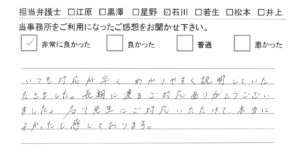 担当弁護士 □江原 □黒澤 □星野 ☑石川 □若生 □松本 □井上
当事務所をご利用になったご感想をお聞かせ下さい。
☑ 非常に良かった □ 良かった □ 普通 □ 悪かった
いつも対応が早く、わかりやすく説明していた
だきました。長期に渡るご対応ありがとうござい
ました。石川先生にご対応いただけて本当に
よかったと感じております。